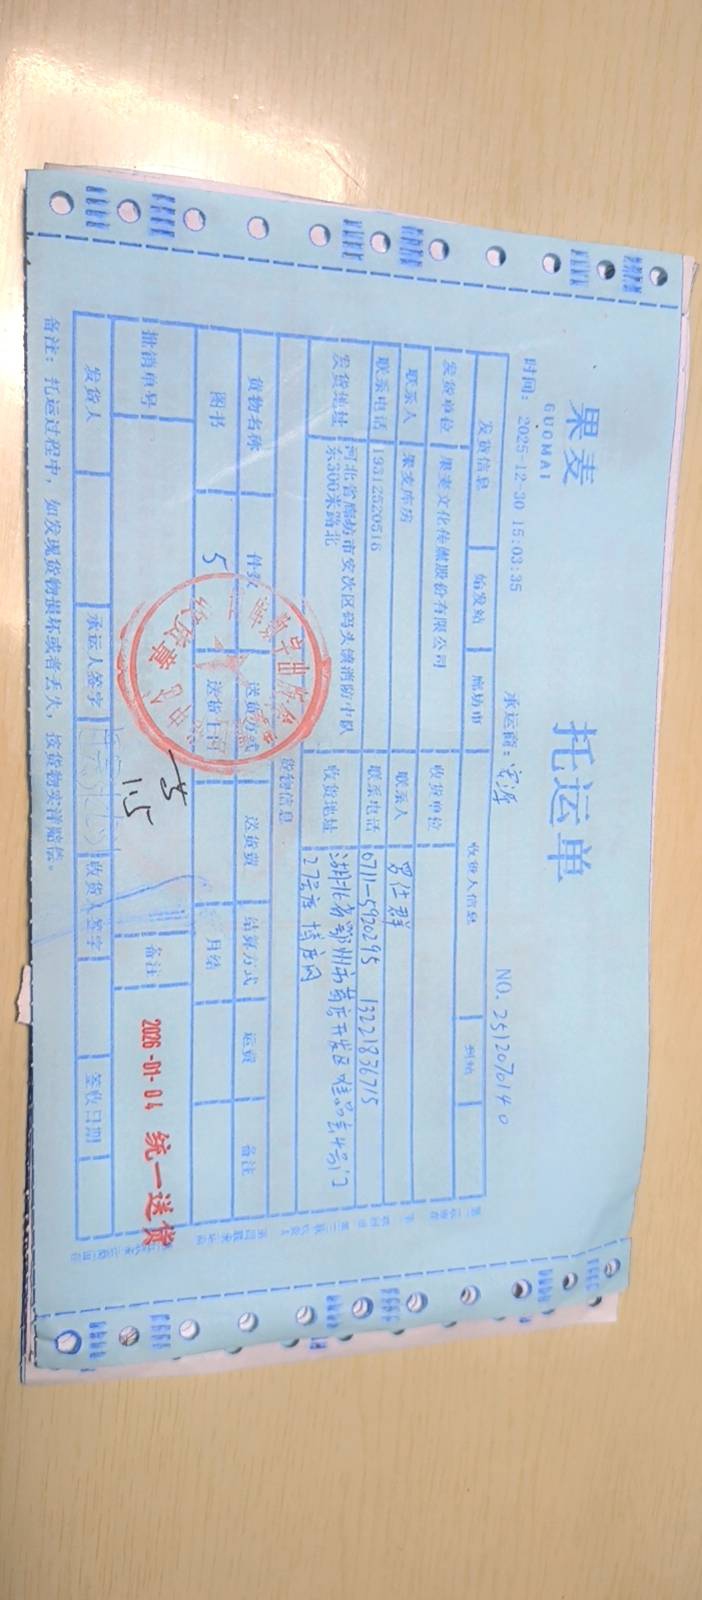 果麦
GUOMAI
托运单
时间: 2025-12-30 15:03:35
承运商:
NO. 2512070140
发货信息 始发站 廊坊市 收货人信息 到站
发货单位 果麦文化传媒股份有限公司 收货单位
联系人 果麦库房 联系人 罗仕群
联系电话 19312520516 联系电话 0711-5920295 13221836715
发货地址 河北省廊坊市安次区码头镇消防中队东300米路北 收货地址 湖北省鄂州市葛店开发区唯品会4号门
27号库 博库网
货物信息
货物名称 件数 送货方式 送货费 结算方式 运费 备注
图书 5 送货上门 月结
批销单号 备注
2026-01-04 统一送货
发货人 承运人签字 收货人签字 签收日期
备注: 托运过程中, 如发现货物损坏或者丢失, 按货物实洋赔偿。